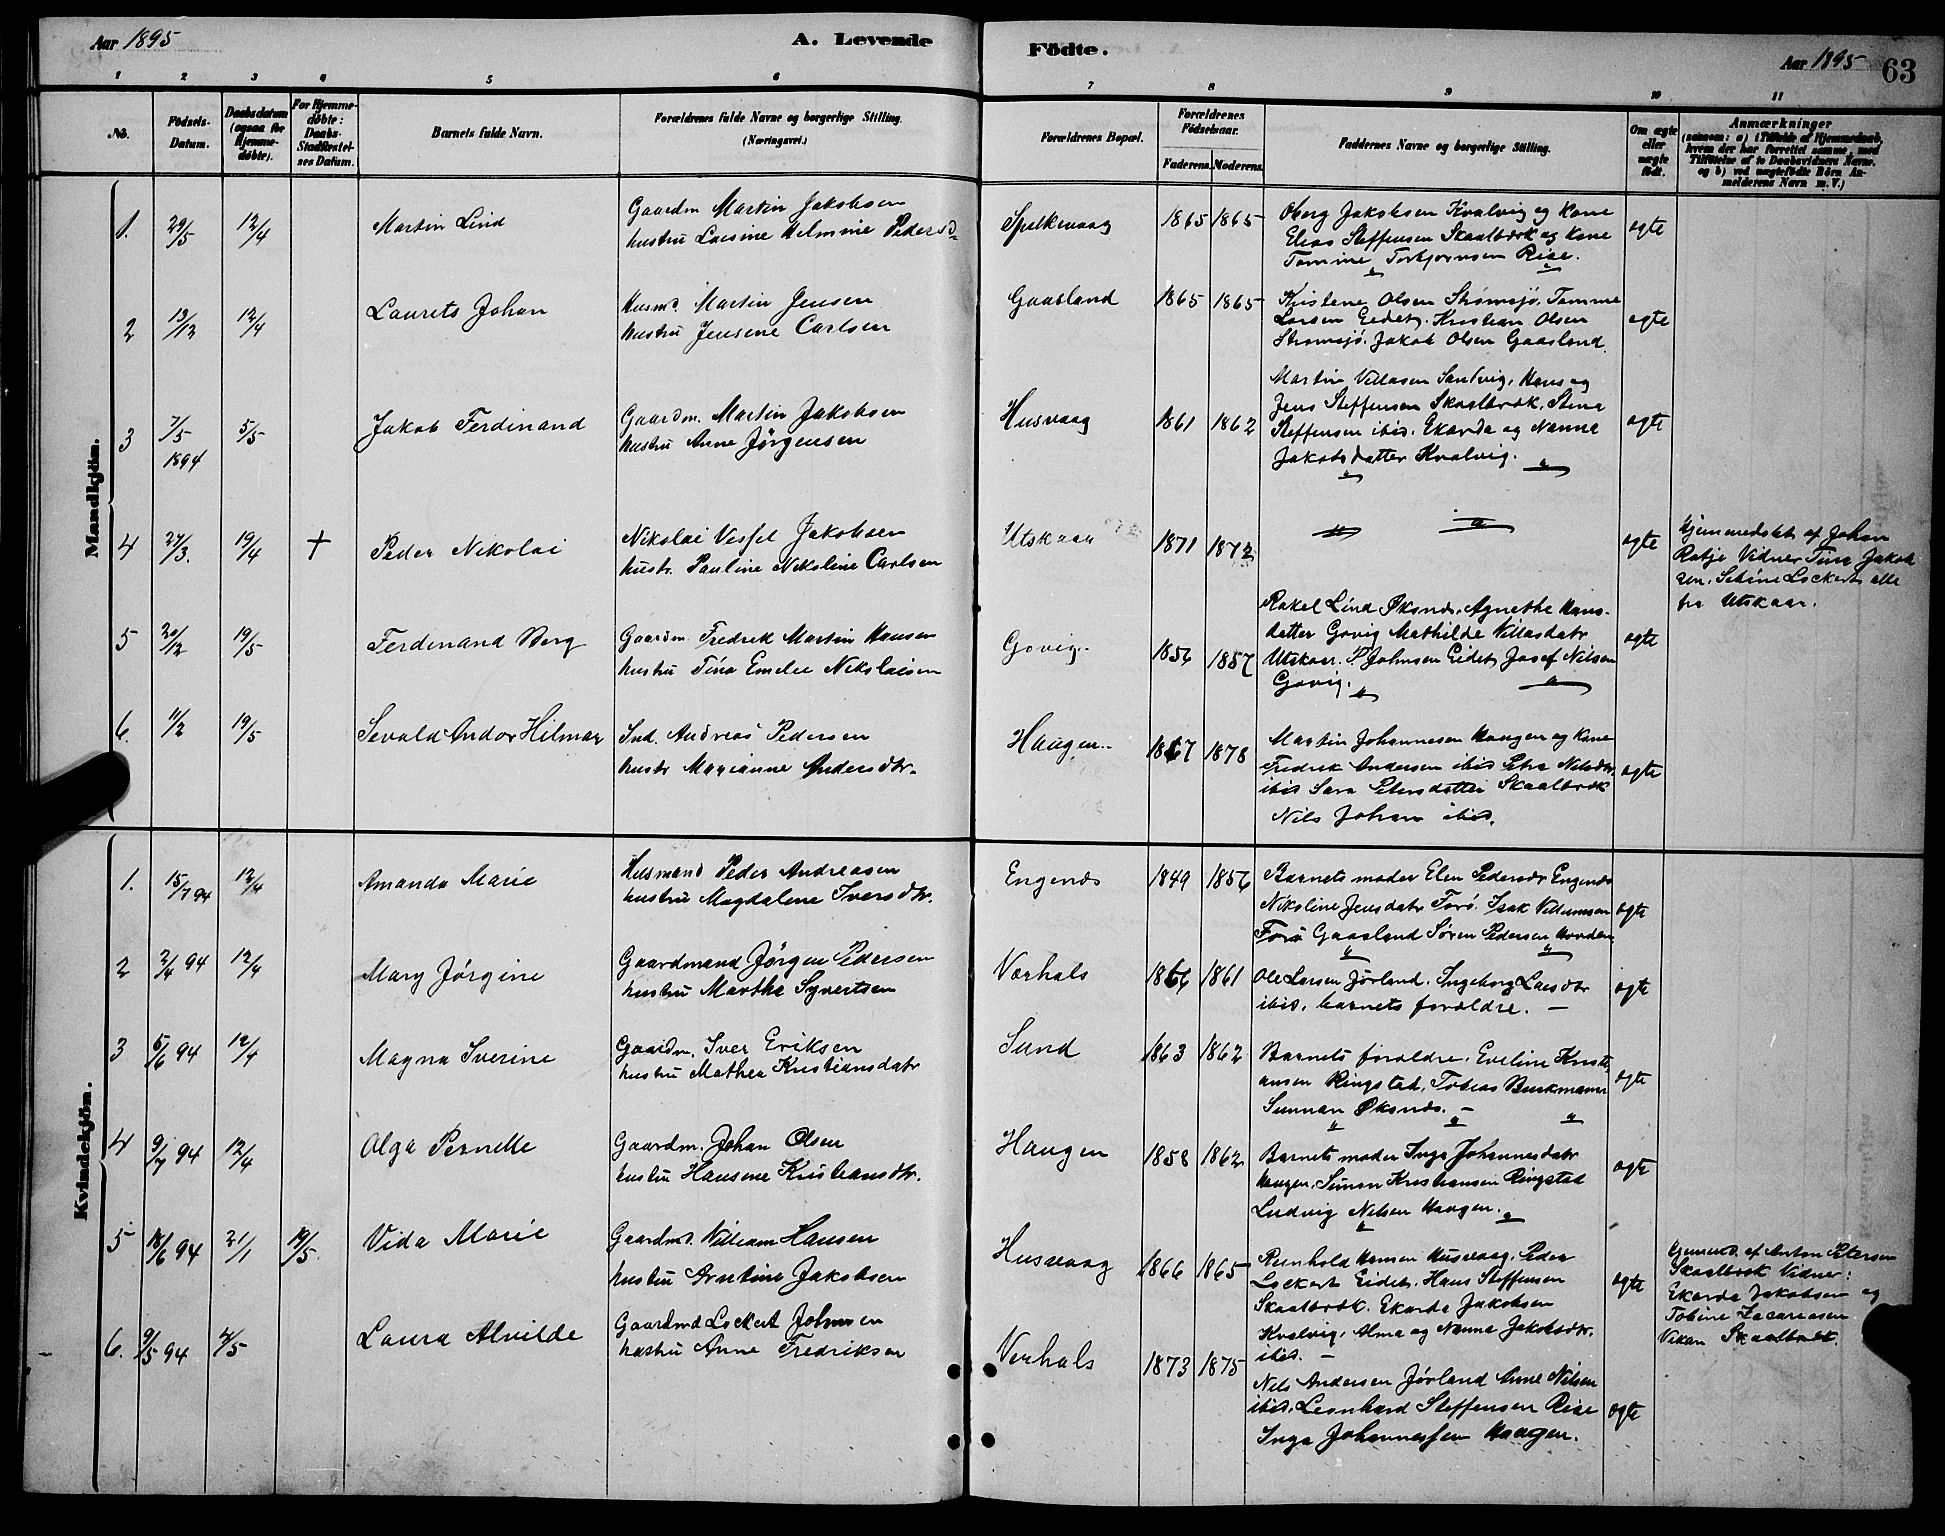 Aar 1895
A. Levende
Födte.
Aar 1895
63
1 2 3 4 5 6 7 8 9 10 11
No.
Födsels-
Datum.
Daabsdatum
(ogsaa for
Hjemme-
døbte).
For Hjemme-
døbte:
Daabs-
Stadfæstel-
ses Datum.
Barnets fulde Navn.
Forældrenes fulde Navne og borgerlige Stilling.
(Næringsvei.)
Forældrenes Bopæl.
Forældrenes
Födselsaar.
Faderens. Moderens.
Faddernes Navne og borgerlige Stilling.
Om ægte
eller
uægte
födt.
Anmærkninger
(saasom: a) i Tilfælde af Hjemmedaab,
hvem der har forrettet samme, med
Tilföielse af to Daabsvidners Navne.
og b) ved uægtefödte Börn An-
melderens Navn m. V.)
Mandkjön.
1. 29/5 12/4
Martin Lind
Gaardm Martin Jakobsen
hustru Lovine Helmine Pedersd
1865 1865
Oberg Jakobsen Kvalvig og Kone
Elias Steffensen Skaalbrok og Kone
Tomine Torbjornsen Rise.
ægte
2 13/12 12/4
Laurets Johan
Husmd. Martin Jensen
hustru Jensine Carlsen
Gaasland
1865 1865
Kristene Olsen Strømsjø, Tomine
Larsen Eidet, Kristian Olsen
Strømsjø. Jakob Olsen Gaasland
ægte
3 7/5 1894 5/5
Jakob Ferdinand
Gaardm. Martin Jakobsen
hustru Anne Jørgensen
Husvaag
1861 1862
Martin Villasen Sandvig, Hans og
Jens Steffensen Skaalbrok, Stina
Steffensen ibid. Ekarda og Nanna
Jakobsdatter Kvalvig.
ægte
4 27/3. 19/4 +
Peder Nikolai
Nikolai Jakobsen
hustr. Pauline Nikoline Carlsen
Utskaar
1871 1872
ægte
Hjemmedøbt af Johan
Ratje Vidner Tina Jakob
sen. Sebine Lockert alle
fra Utskaar.
5 20/12 19/5
Ferdinand Berg
Gaardm. Fredrik Martin Hansen
hustru Tina Emelie Nikolaisen
Govig.
1856 1857
Rakel Lind Øksnes, Agnethe Hans-
datter Govig Mathilde Villasdatr
Utskaar. P. Johnsen Eidet Josef Nilsen
Govig.
ægte
6. 11/2 19/5
Sevald Andor Hilmar
Ind. Andreas Pedersen
hustr Marianne Andersdtr.
Haugen
1867 1878
Martin Johannesen Haugen og Kone
Fredrik Andersen ibid Petra Nilsdtr
ibid Sara Petersdatter Skaalbrok
Nils Johan ibid.
ægte
Kvindekjön.
1. 15/7 94 12/4
Amanda Marie
Husmand Peder Andreasen
hustru Magdalene Iversdtr.
Engenæs
1849 1856
Barnets moder Elen Pedersdr Engenæs
Nikoline Jensdatr Forö. Isak Villumsen
Forö Gaasland Søren Pedersen
ægte
2 2/4 94 12/4
Mary Jørgine
Gaardmand Jørgen Pedersen
hustru Martha Syvertsen
Værhals
1866 1861
Ole Larsen Jørland, Ingeborg Larsdtr
ibid. barnets forældre.
ægte
3 5/6 94 12/4
Magna Iverine
Gaardm. Iver Eriksen
hustru Mathea Kristiansdatr
Sund
1863 1862
Barnets forældre. Eveline Kristi
ansen Ringstad, Tobias Benkmann
Sunnan Øksnes.
ægte
4 9/7 94 12/4
Olga Pernelle
Gaardm. Johan Olsen
hustru Hansine Kristiansdtr.
Haugen
1858 1862
Barnets moder Inga Johannesdatr
Haugen. Simon Kristiansen Ringstad
Ludvig Nilsen Haugen.
ægte
5 18/6 94 21/1 19/5.
Vida Marie
Gaardmd. William Hansen
hustru Arntine Jakobsen
Husvaag
1866 1865
Reinhold Hansen Husvaag, Peder
Lockert Eidet. Hans Steffensen
Skaalbrok. Ekarda Jakobsen
Kvalvig, Alma og Nanna Jakobsdtr.
ibid.
ægte
Hjemmed. af Anton Petersen
Skaalbrok Vidner:
Ekarda Jakobsen og
Tobine Zacariasen
Vikan Skaalbrok.
6. 9/5 94
Laura Alvilde
Gaardmd Lockert Johnsen
hustru Anne Fredriksen
Verhals
1873 1875
Nils Andersen Jørland Anne Nilsen
ibid. Leonhard Steffensen Rise
Inga Johannessen Haugen.
ægte